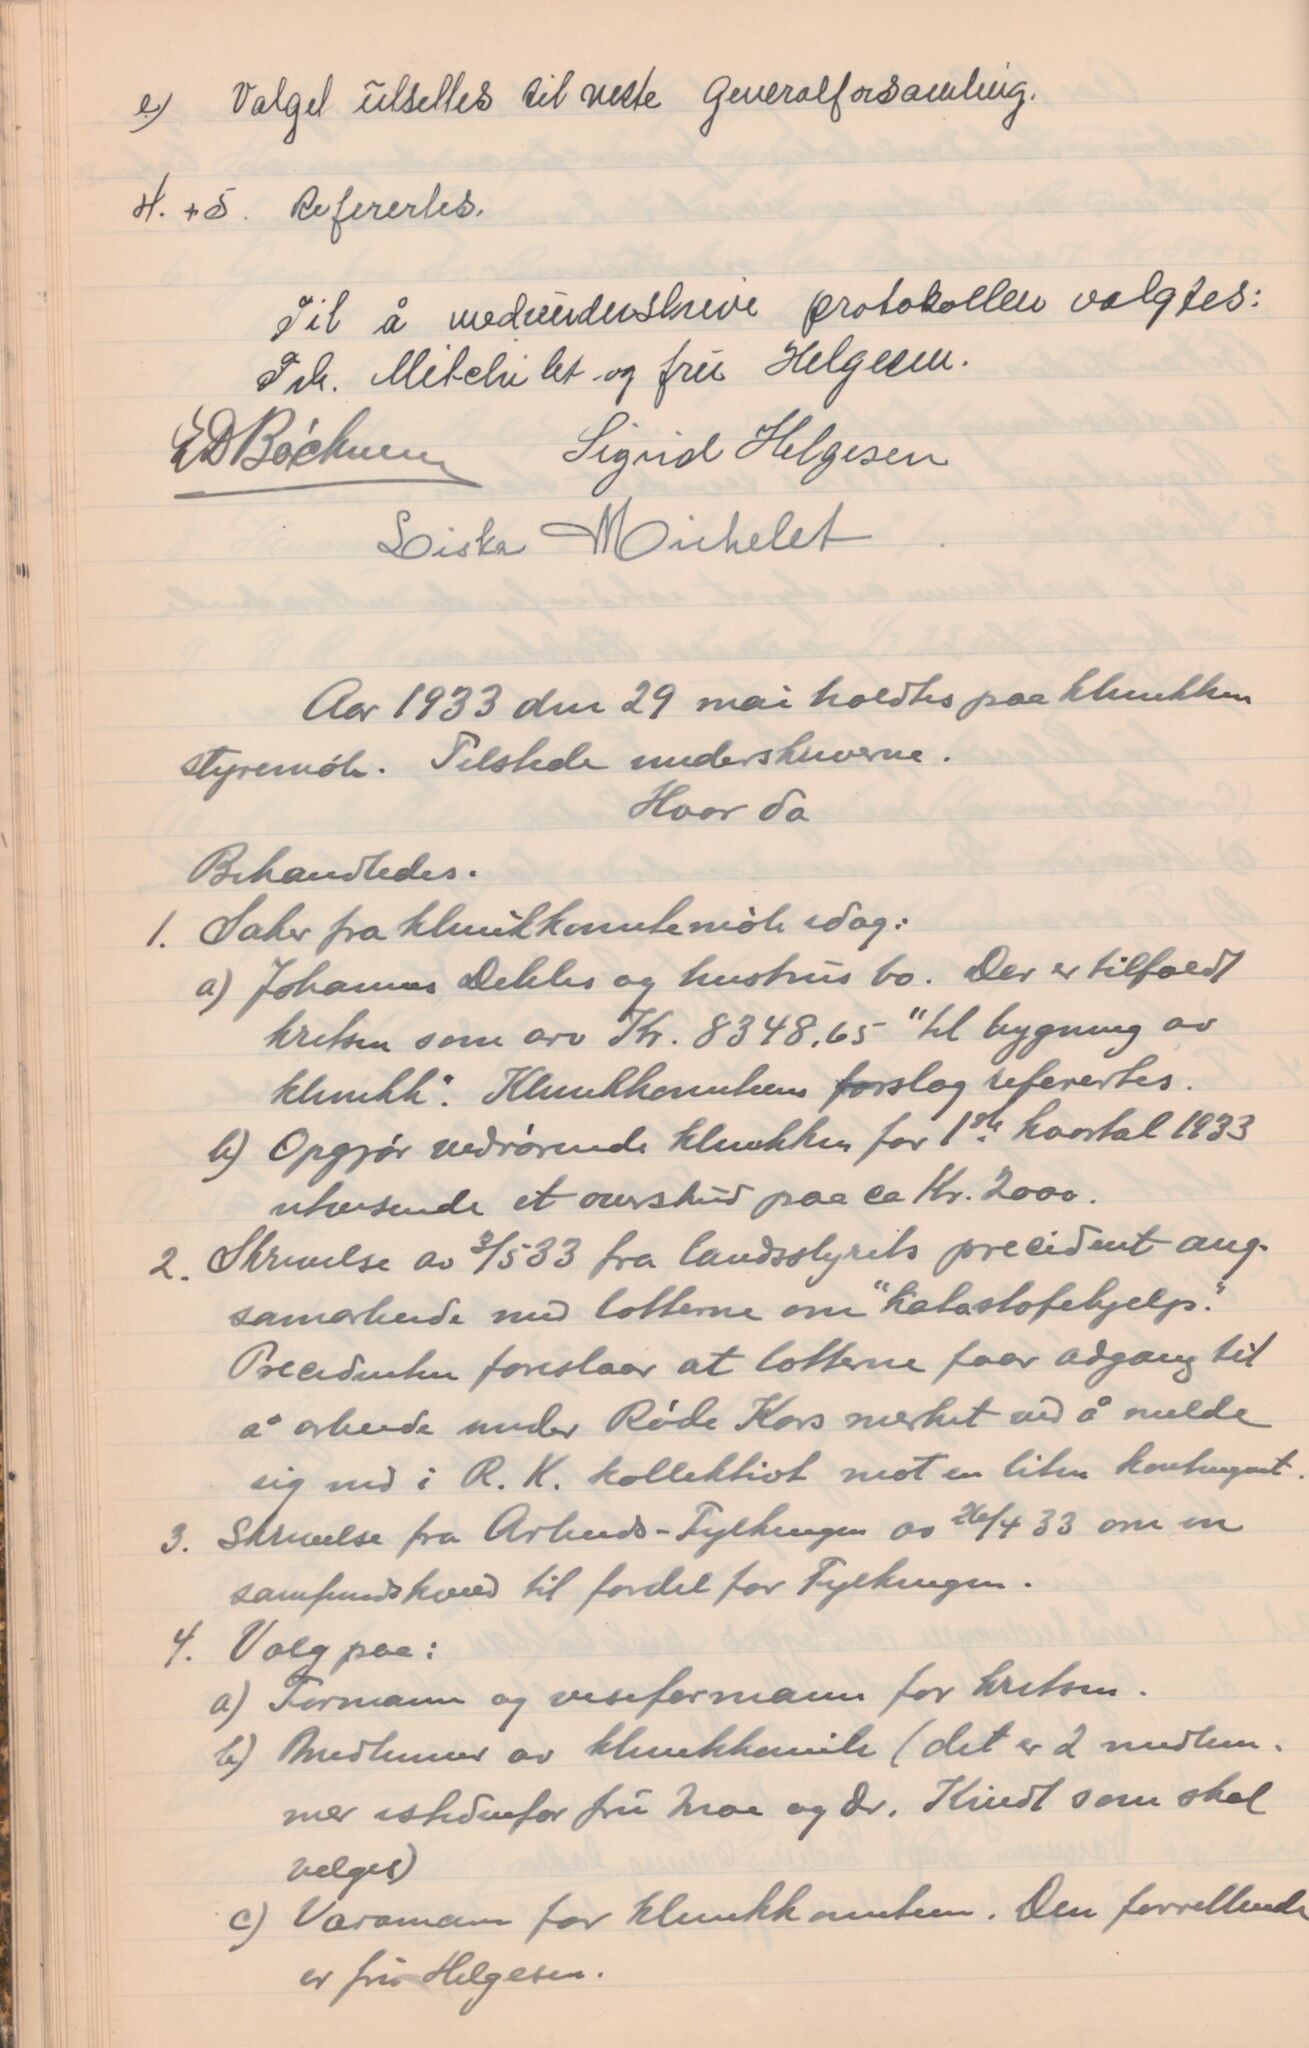 e) Valget utsettes til neste Generalforsamling.
4. + 5. Referertes.
Til å medunderskrive protokollen valgtes:
Frk. Mitchelet og fru Helgesen.
Sigrid Helgesen
Michelet
Aar 1933 den 29 mai holdtes paa klinikken
styremöte. Tilstede underskriverne.
Hvor da
Behandledes.
1. Saker fra klinikkomitemöte idag:
a) Johannes og hustrus bo. Der er tilfaldt
kretsen som arv Kr. 8348,65 "til bygning av
klinikk". Klinikkomiteens forslag refertes.
b) Opgjør vedrørende klinikken for 1ste kvartal 1933
utvisende et overskud paa ca Kr. 2000.
2. Skrivelse av 3/5 33 fra landsstyrets precident ang.
samarbeide med lotterne om "katastofehjelp."
Precidenten foreslaar at lotterne faar adgang til
å arbeide under Røde Kors merket ved å melde
sig ind i R. K. kollektivt mot en liten kontingent.
3. Skrivelse fra Arbeids-Fylkingen av 26/4 33 om en
til fordel for Fylkingen.
4. Valg paa:
a) Formann og viseformann for kretsen.
b) Medlemmer av klinikkomite (det er 2 medlem-
mer istedenfor fru Moe og Dr. Kindt som skal
velges)
c) Varamann for klinikkomiteen. Den
er fru Helgesen.